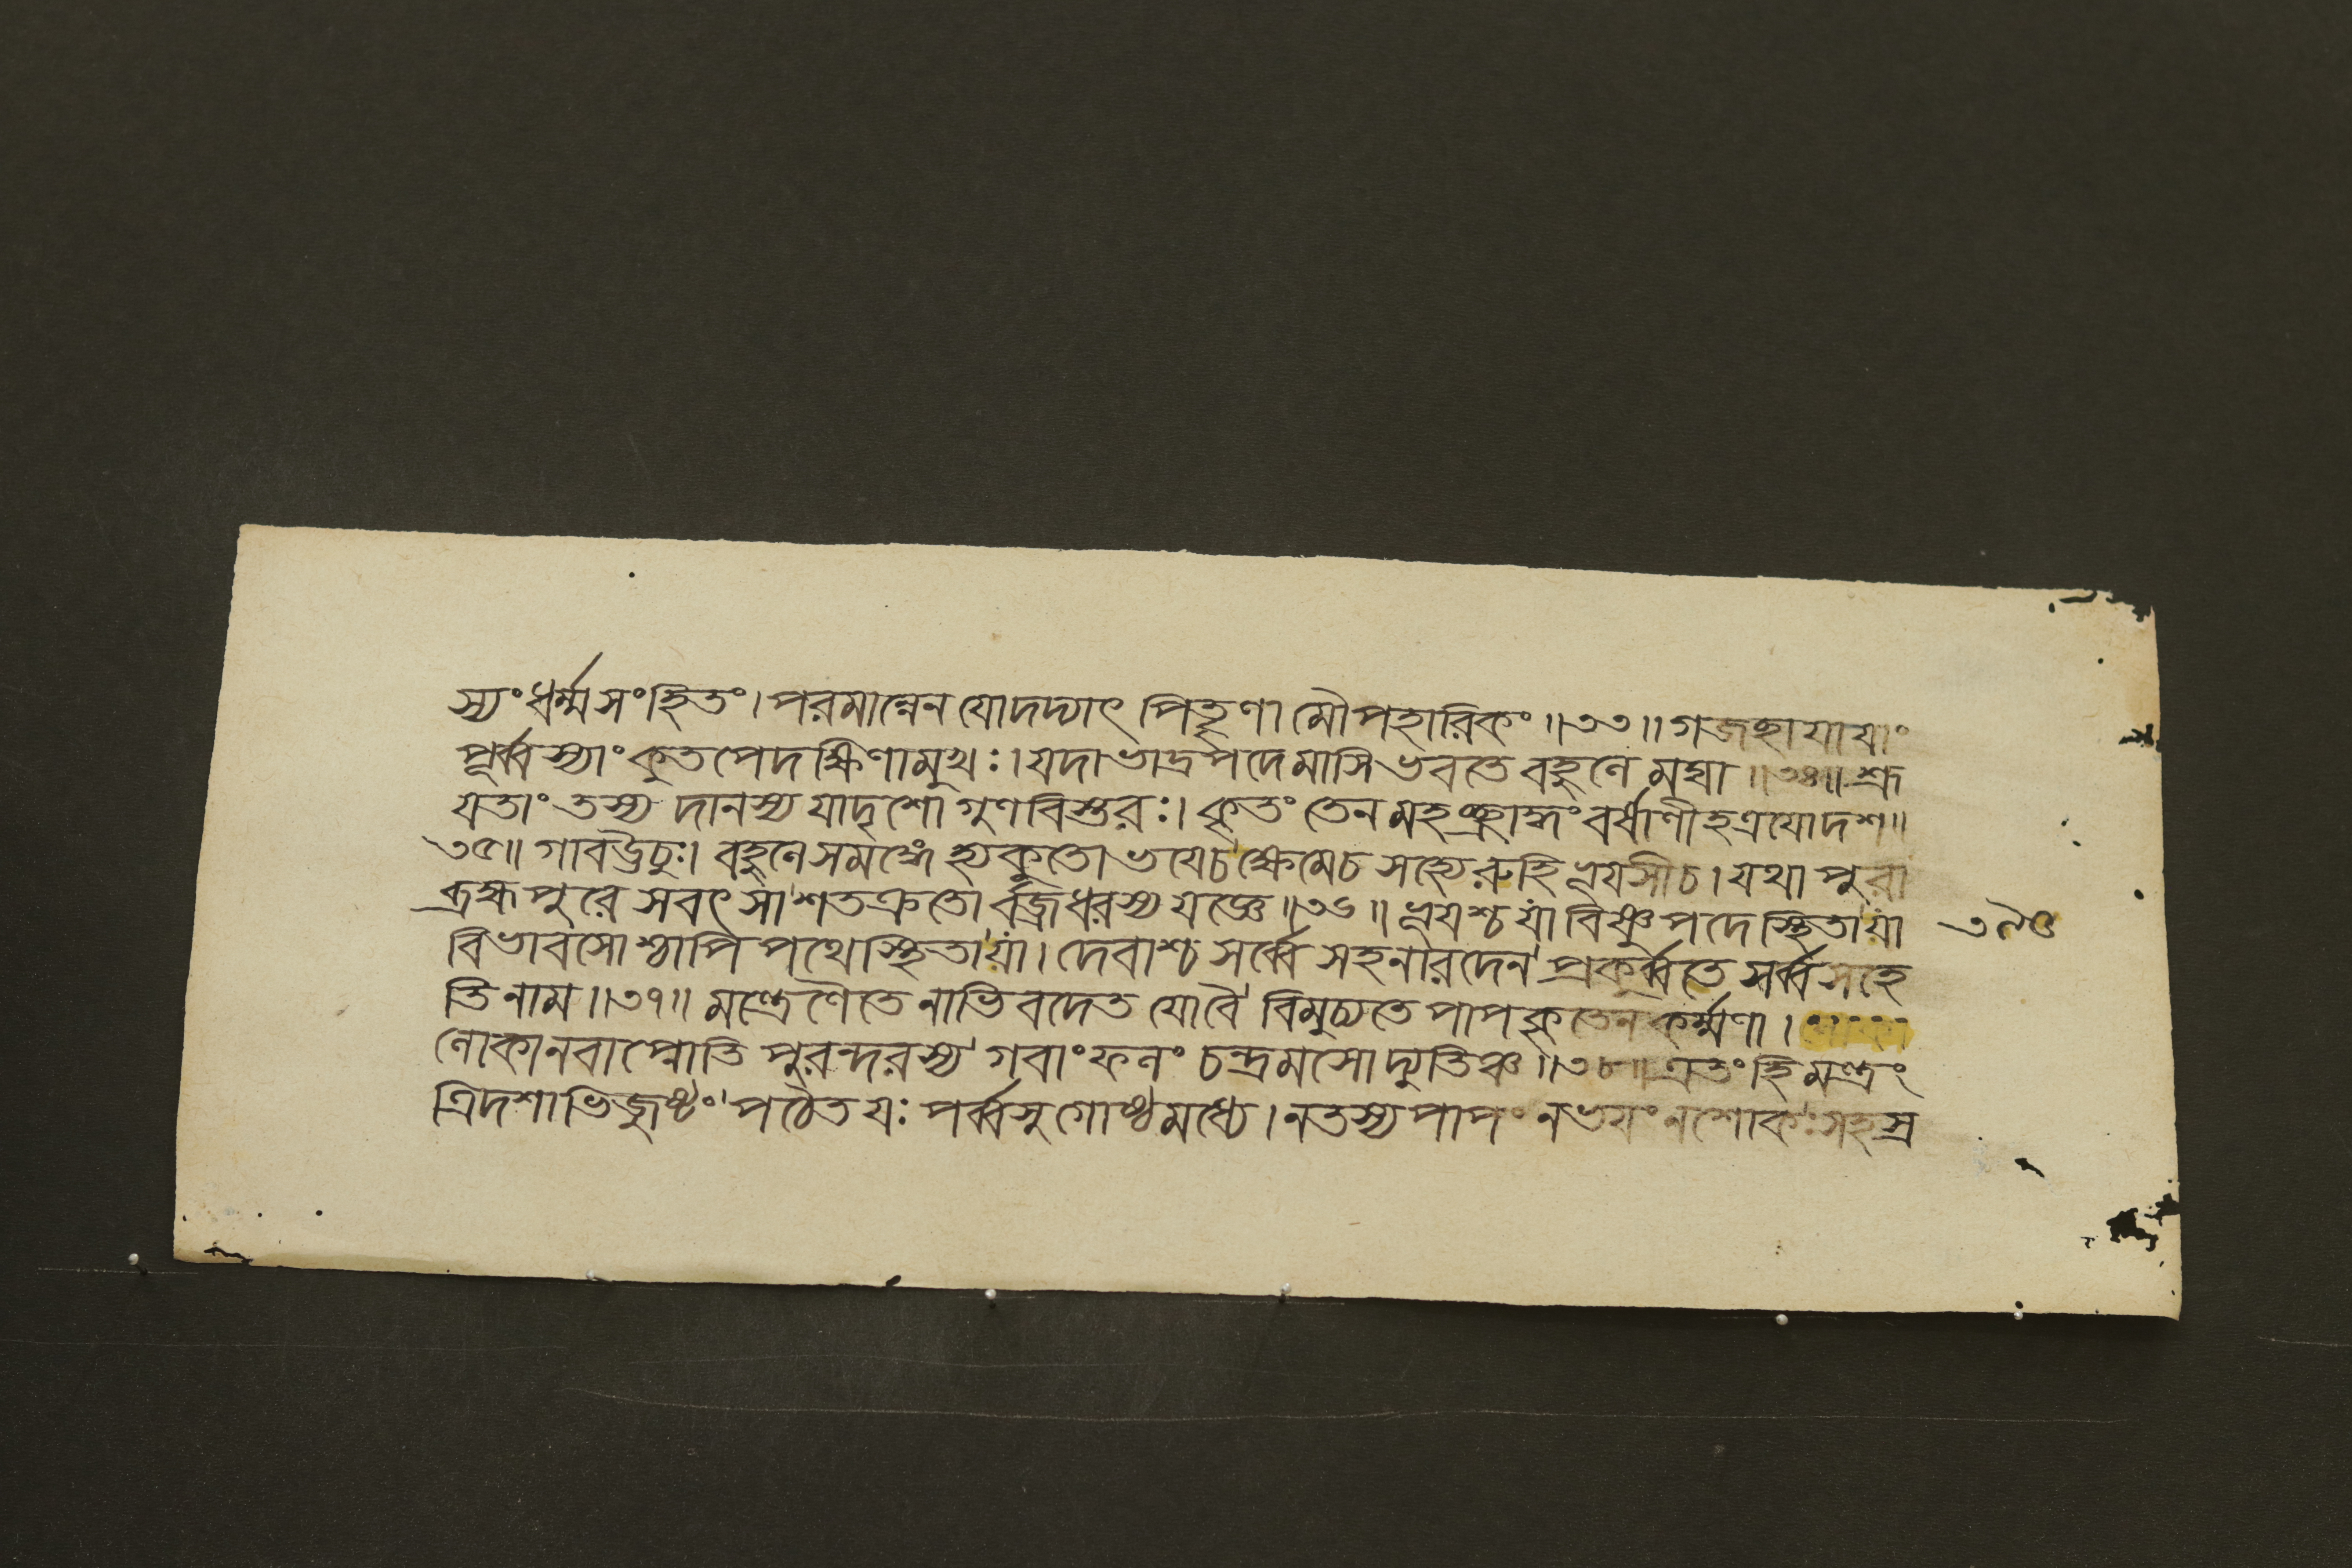 স্যংধর্ম্মসংহিতং।পরমান্নেনযোদদ্যাৎ পিতৄণামৌপহারিকং॥৩৩॥গজচ্ছাযাযাং
পূর্ব্বস্যাংকুতপেদক্ষিণামুখঃ।যদাভাদ্রপদেমাসিভবতেবহুলেমঘা॥৩৪॥শ্রূ
যতাংতস্যদানস্যযাদৃশোগুণবিস্তরঃ।কৃতংতেনমহচ্ছ্রাদ্ধংবর্ষাণীহত্রযোদশ॥
৩৫॥গাবঊচুঃ।বহুলেসমঙ্গেহ্যকুতোভযেচক্ষেমেচসখ্যেরুহিভূযসীচ।যথাপুরা
ব্রহ্মপুরেসবৎসাশতক্রতোর্বজ্রধরস্যযজ্ঞে॥৩৬॥ভূযশ্চযাংবিষ্ণুপদেস্থিতাযাং
বিভাবসোশ্চাপিপথেস্থিতাযাং।দেবাশ্চসর্ব্বেসহনারদেনপ্রকুর্ব্বতেসর্ব্বসহে
তিনাম॥৩৭॥মন্ত্রেণৈতেনাভিবদেতযোবৈবিমুচ্যতেপাপকৃতেনকর্ম্মণা।
লোকানবাপ্নোতিপুরন্দরস্যগবাংফলংচন্দ্রমসোদ্যুতিঞ্চ॥৩৮॥এতংহিমন্ত্রং
ত্রিদশাভিজুষ্টংপঠেতযঃপর্ব্বসুগোষ্ঠমধ্যে।নতস্যপাপংনভযংনশোকঃসহস্র